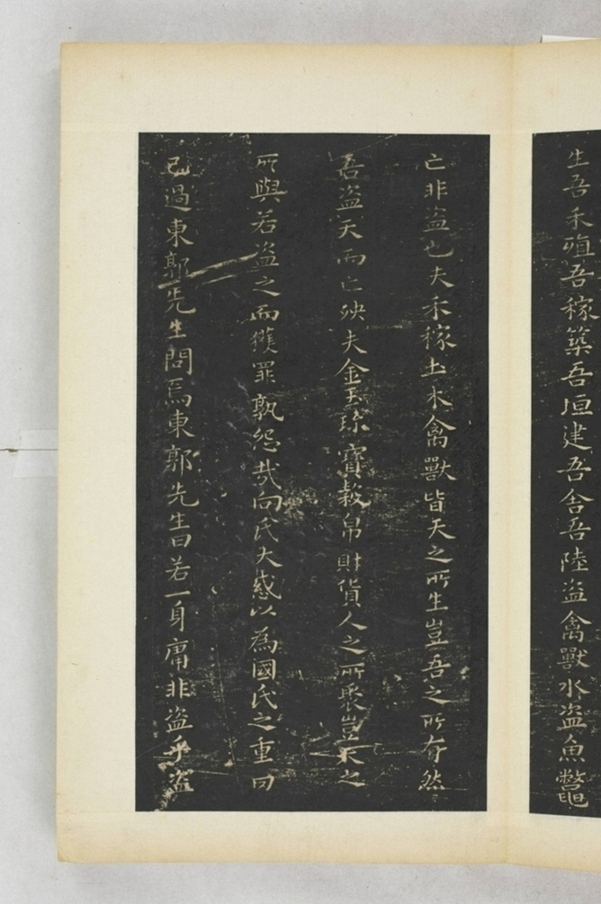 生吾禾殖吾稼築吾垣建吾舍吾陸盜禽獸水盜魚鼈
亡非盜也夫禾稼土木禽獸皆天之所生豈吾之所有然
吾盜天而亡殃夫金玉珎寶穀帛財貨人之所聚豈天之
所與若盜之而獲罪孰怨哉向氏大惑以為國氏之重罔
己過東郭先生問焉東郭先生曰若一身庸非盜乎盜